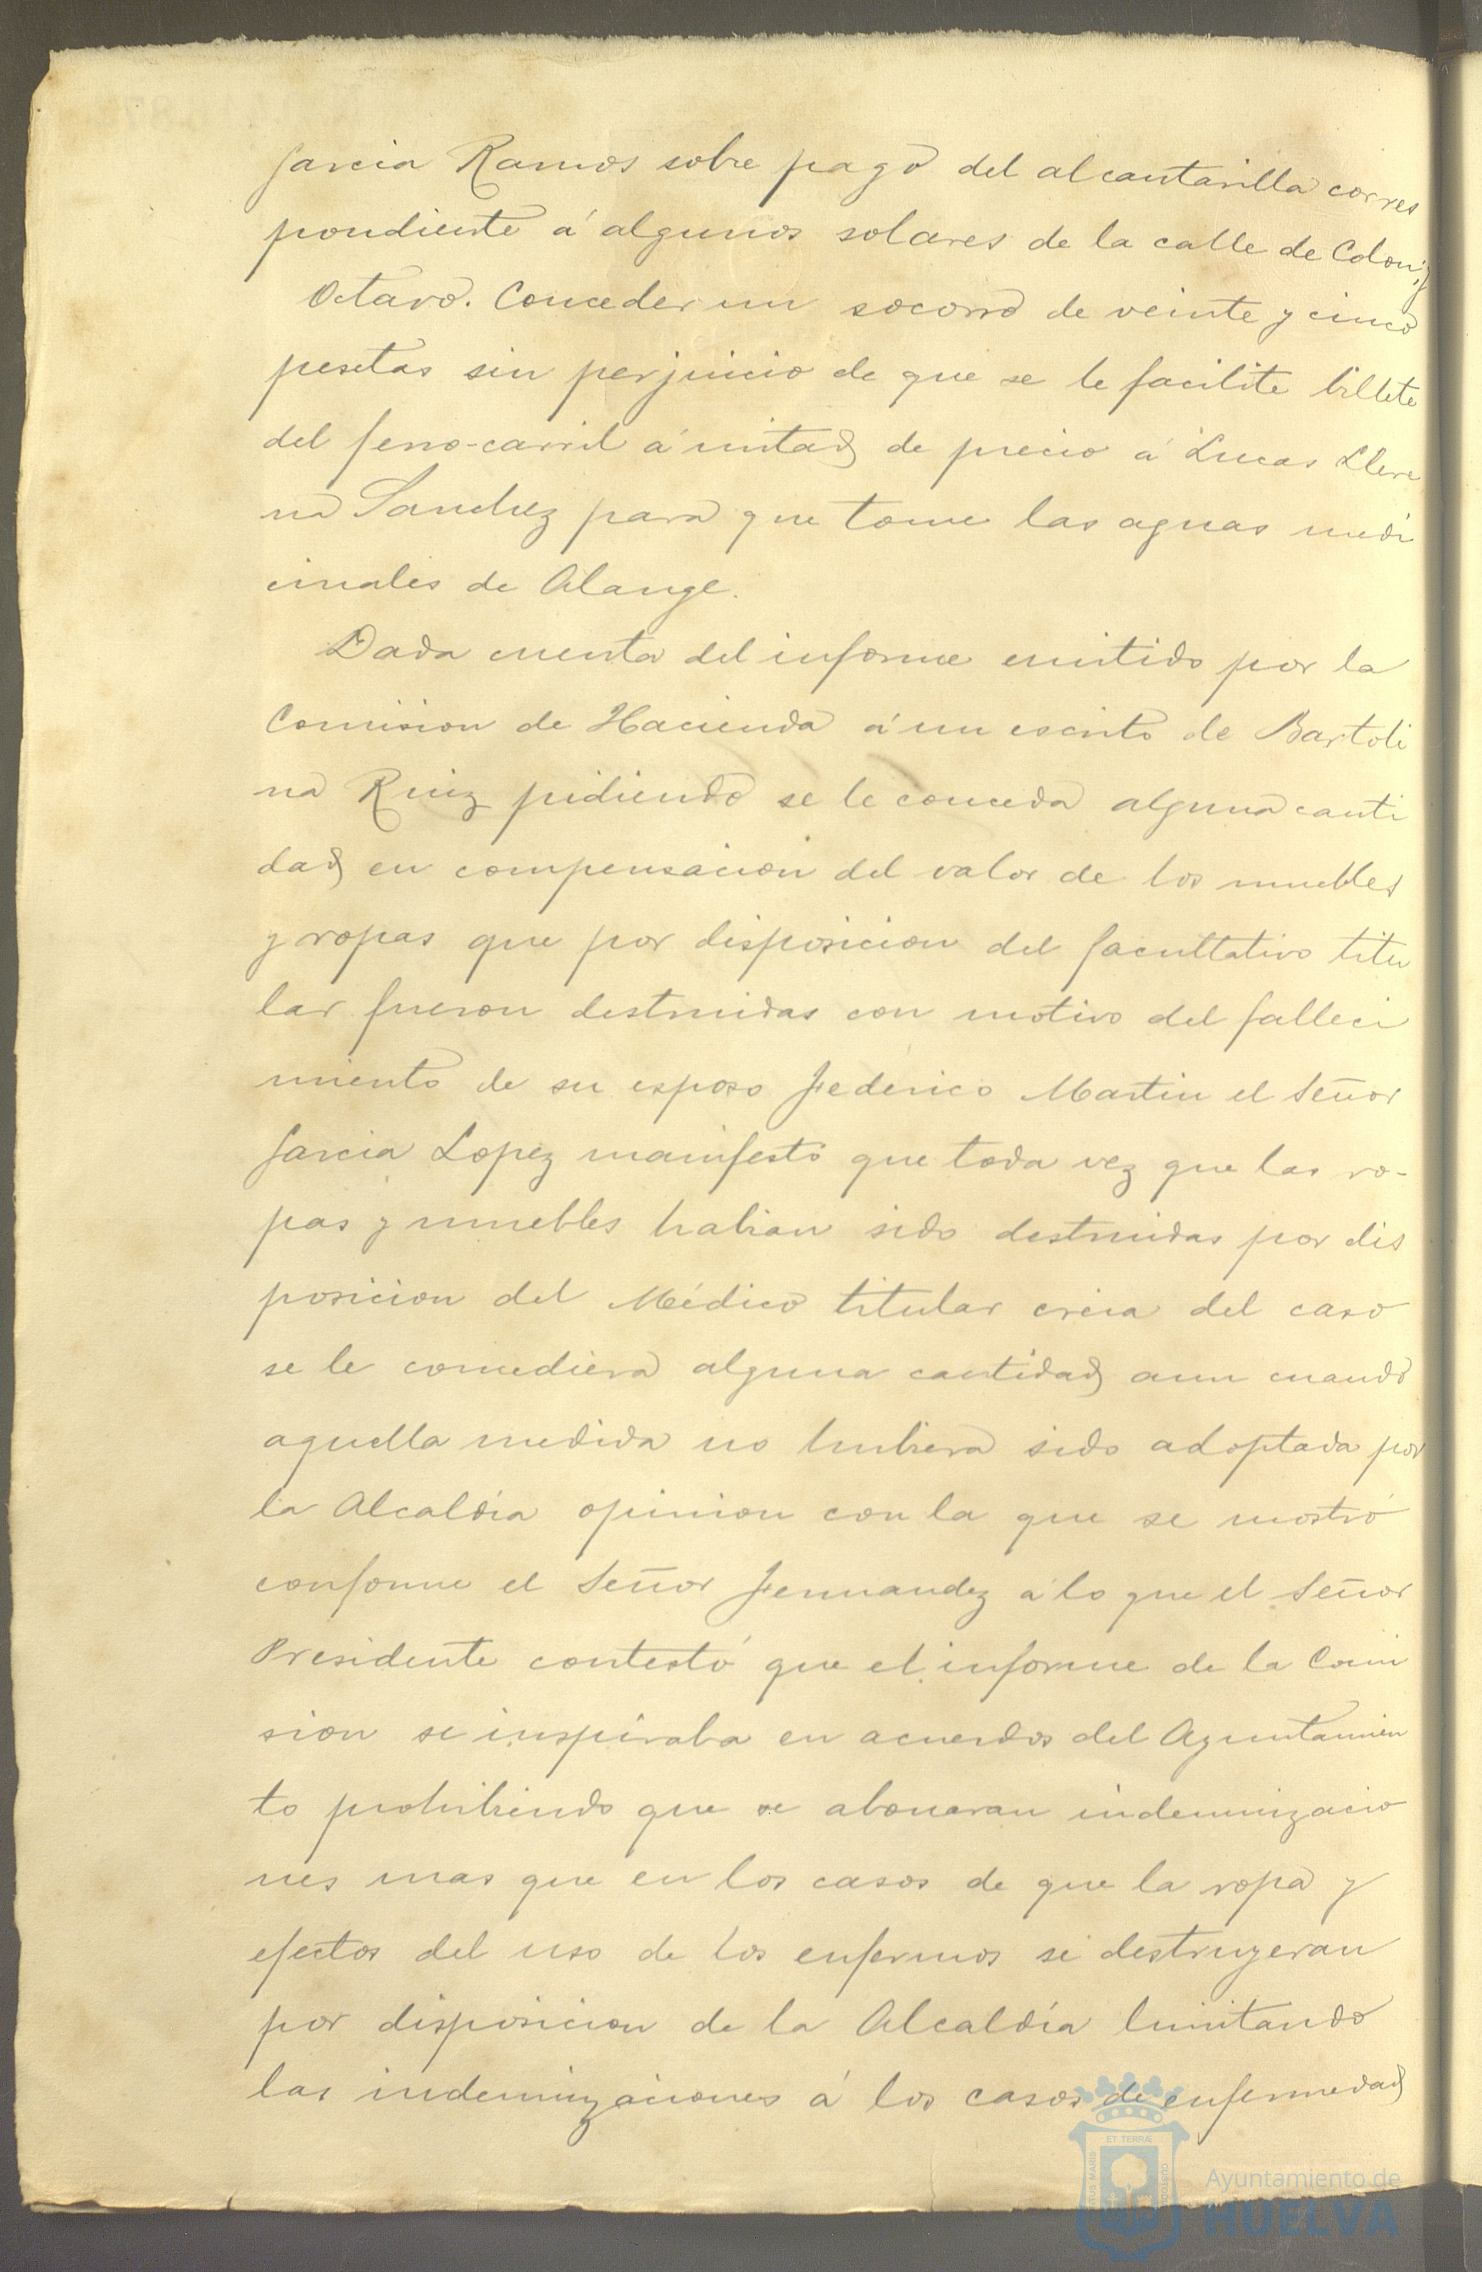 Garcia Ramos sobre pago del alcantarilla corres
pondiente á algunos solares de la calle de Colon; y
Octavo. Conceder un socorro de veinte y cinco
pesetas sin perjuicio de que se le facilite billete
del ferro-carril á mitad de precio á Lucas Llere
na Sanchez para que tome las aguas medi
cinales de Alange.
Dada cuenta del informe emitido por la
Comision de Hacienda á un escrito de Bartoli
na Ruiz pidiendo se le conceda alguna canti
dad en compensacion del valor de los muebles
y ropas que por disposicion del facultativo titu
lar fueron destruidas con motivo del falleci
miento de su esposo Federico Martin el Señor
Garcia Lopez manifestó que toda vez que las ro-
pas y muebles habian sido destruidas por dis
posicion del Médico titular creia del caso
se le concediera alguna cantidad aun cuando
aquella medida no hubiera sido adoptada por
la Alcaldía opinion con la que se mostró
conforme el Señor Fernandez á lo que el Señor
Presidente contestó que el informe de la Comi
sion se inspiraba en acuerdos del Ayuntamien
to prohibiendo que se abonaran indemnizacio
nes mas que en los casos de que la ropa y
efectos del uso de los enfermos se destruyeran
por disposicion de la Alcaldía limitando
las indemnizaciones á los casos de enfermedad
ET TERRÆ
Ayuntamiento de
HUELVA